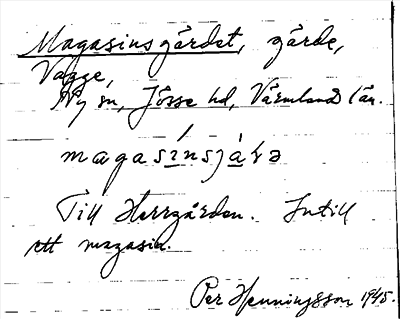 Magasinsgärdet, gärde,
Vagge,
Ny sn, Jösse hd, Värmland län.
magasínsjäɽə
Till Herrgården. Intill
ett magasin.
Per Henningsson 1945.